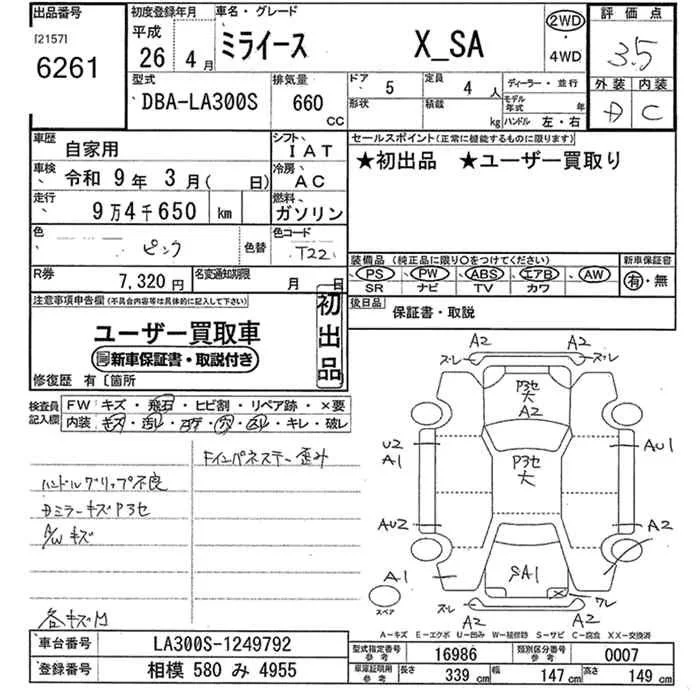 出品番号
[2157]
6261
初度登録年月
平成
26年 4月
車名・グレード
ミライース X_SA
2WD
・
4WD
評価点
3.5
外装 内装
D C
型式
DBA-LA300S
排気量
660
CC
ドア
5
形状
定員
4人
積載
kg
ディーラー・並行
モデル年式 年
ハンドル 左・右
車歴
自家用
シフト
IAT
車検
令和 9年 3月( 日)
冷房
AC
走行
9万4千650 km
燃料
ガソリン
色
ピンク
色替
色コード
T22
R券
7,320円
名変通知期限
月 日
セールスポイント(正常に機能するものに限ります)
★初出品 ★ユーザー買取り
装備品(純正品に限り○をつけてください)
PS、PW、ABS、エアB、AW
SR ナビ TV カワ
新車保証書
有・無
後日品
保証書・取説
注意事項申告欄(不具合内容等は具体的に記入して下さい)
ユーザー買取車
新車保証書・取説付き
初出品
修復歴 有〔箇所
検査員記入欄
FW キズ・飛石・ヒビ割・リペア跡・×要
内装 キズ・汚レ・コゲ・穴・凹レ・キレ・破レ
Fインパネステー歪み
ハンドルグリップ不良
DミラーキズPヨセ
A/Wキズ
各キズ凹
A2 A2
ズレ ズレ
Pヨセ
大
A2
U2 AU1
A1
Pヨセ
大
AU2 A2
A1
SA1
×
ワレ
スペア
ズレ ズレ
A2 A2
A－キズ E－エクボ U－凹み W－補修跡 S－サビ C－腐食 XX－交換済
車台番号
LA300S-1249792
登録番号
相模 580 み 4955
型式指定番号
参考
16986
類別区分番号
参考
0007
車庫証明用
参考
長さ 339 cm 幅 147 cm 高さ 149 cm